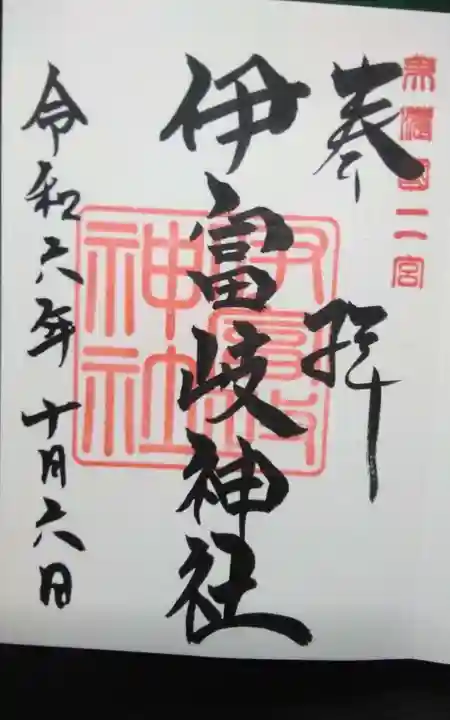 美濃國二宮
奉拝
伊富岐神社
伊富岐神社
令和六年十月六日